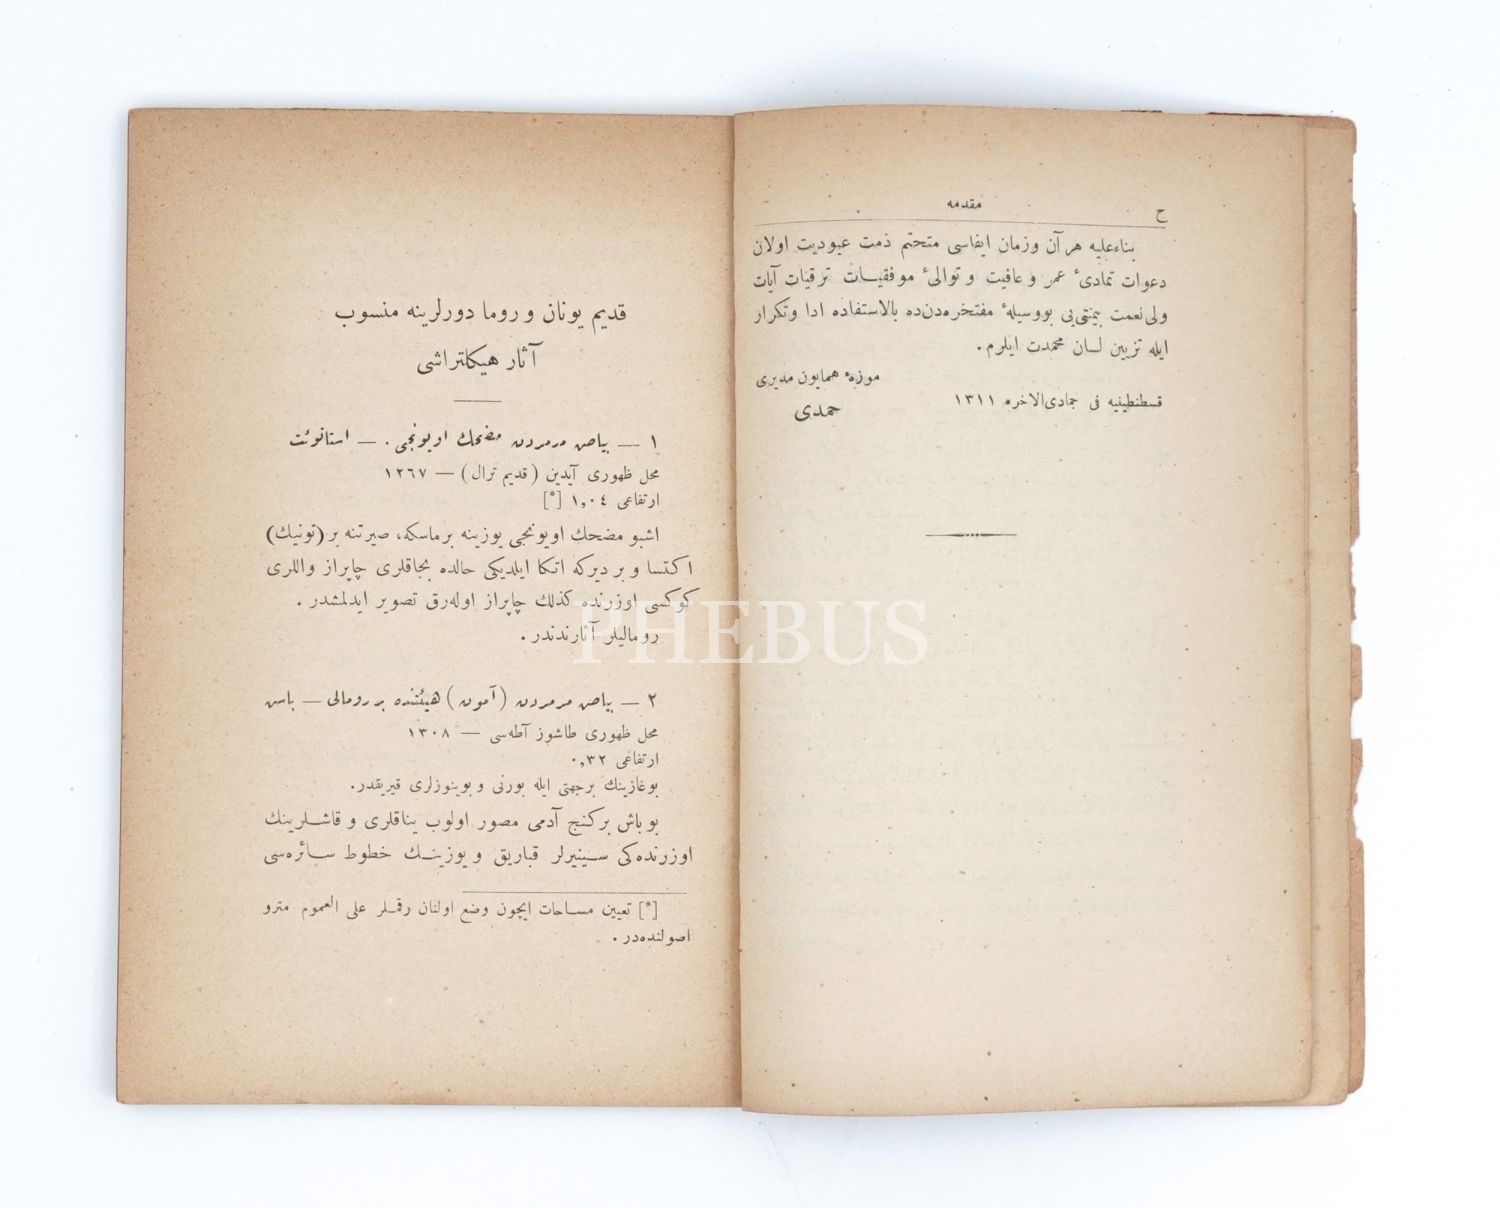 ح
مقدمه
بناءعليه هر آن وزمان ايفاسى متحتم ذمت عبوديت اولان
دعوات تمادئ عمر و عافيت و توالئ موفقيات ترقيات آيات
ولى نعمت بيمنتى‌يى بووسيلهٔ مفتخره‌دن‌ده بالاستفاده ادا وتكرار
ايله تزيين لسان محمدت ايلرم.
موزهٔ همايون مديرى
قسطنطينيه فى جمادى‌الاخره ١٣١١
حمدى
قديم يونان و روما دورلرينه منسوب
آثار هيكلتراشى
١ — بياض مرمردن مضحك اويونجى. — استاتوئت
محل ظهورى آيدين (قديم ترال) — ١٢٦٧
ارتفاعى ١,٠٤ [*]
اشبو مضحك اويونجى يوزينه برماسكه، صيرتنه بر (تونيك)
اكتسا و بر ديركه اتكا ايلديكى حالده بجاقلرى چاپراز واللرى
كوكسى اوزرنده كذلك چاپراز اوله‌رق تصوير ايدلمشدر.
روماليلر آثارندندر.
٢ — بياض مرمردن (آمون) هيئتنده بر رومالى — باش
محل ظهورى طاشوز آطه‌سى — ١٣٠٨
ارتفاعى ٠,٣٢
بوغازينك برجهتى ايله بورنى و بوينوزلرى قيريقدر.
بو باش بركنج آدمى مصور اولوب يناقلرى و قاشلرينك
اوزرنده‌كى سينيرلر قباريق و يوزينك خطوط سائره‌سى
[*] تعيين مساحات ايچون وضع اولنان رقملر على العموم مترو
اصولنده‌در.
PHEBUS